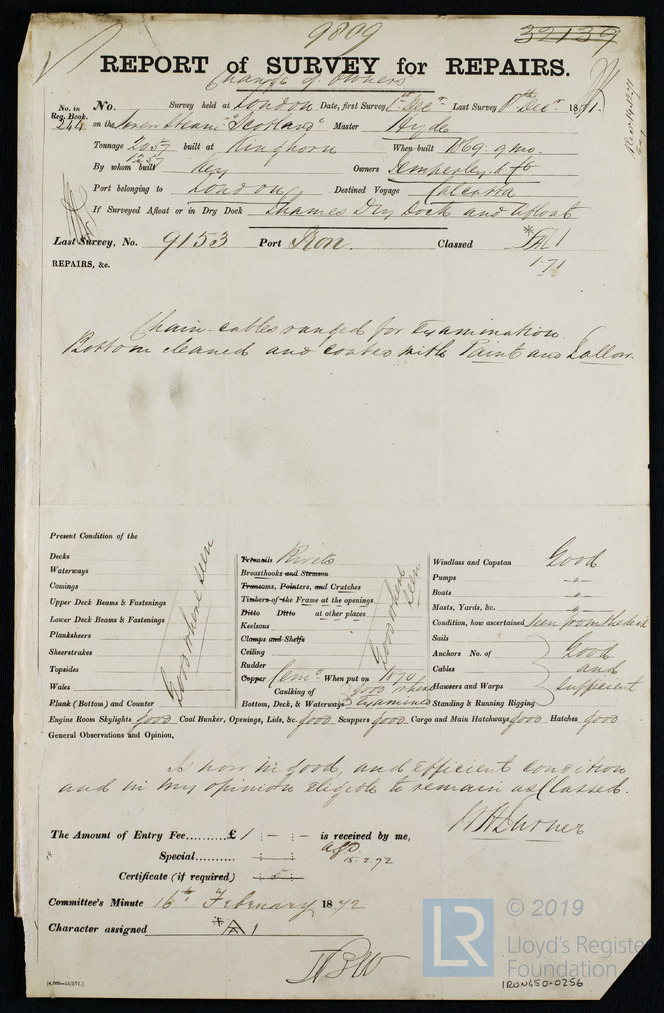 9809
32139
REPORT of SURVEY for REPAIRS.
Change of Owners
No. in Reg. Book. No. Survey held at London Date, first Survey 1st Decr Last Survey 8th Decr 1871.
244 on the Screw Steam "Scotland" Master Hyde
Tonnage 2057 built at Kinghorn When built 1869. 9 mo.
1257
By whom built Key Owners Temperley & Co
Port belonging to London Destined Voyage Calcutta
If Surveyed Afloat or in Dry Dock Thames Dry Dock and Afloat
Last Survey, No. 9153 Port Iron. Classed *A1
REPAIRS, &c. 1.71
Chain-cables ranged for Examination
Bottom cleaned and coated with Paint and Tallow.
Present Condition of the
Decks
Waterways
Comings
Upper Deck Beams & Fastenings
Lower Deck Beams & Fastenings
Planksheers
Sheerstrakes
Topsides
Wales
Plank (Bottom) and Counter
Good where seen
Treenails Rivets
Breasthooks and Stemson
Transoms, Pointers, and Crutches
Timbers of the Frame at the openings
Ditto Ditto at other places
Keelsons
Clamps and Shelfs
Ceiling
Rudder
Copper Cemt. When put on 1870
Caulking of Bottom, Deck, & Waterways good where Examined
Good where seen
Windlass and Capstan Good
Pumps "
Boats "
Masts, Yards, &c. "
Condition, how ascertained Seen from the deck
Sails
Anchors No. of Good
Cables and
Hawsers and Warps sufficient
Standing & Running Rigging
Engine Room Skylights good Coal Bunker, Openings, Lids, &c. good Scuppers good Cargo and Main Hatchways good Hatches good
General Observations and Opinion,
Is now in good, and efficient condition
and in my opinion eligible to remain as Classed.
The Amount of Entry Fee..........£ 1 : - : - is received by me,
Special..........
15.2.72
Certificate (if required)
Committee's Minute 16th February 1872
Character assigned *A1
© 2019
LR
Lloyd's Register
Foundation
IRON450-0256